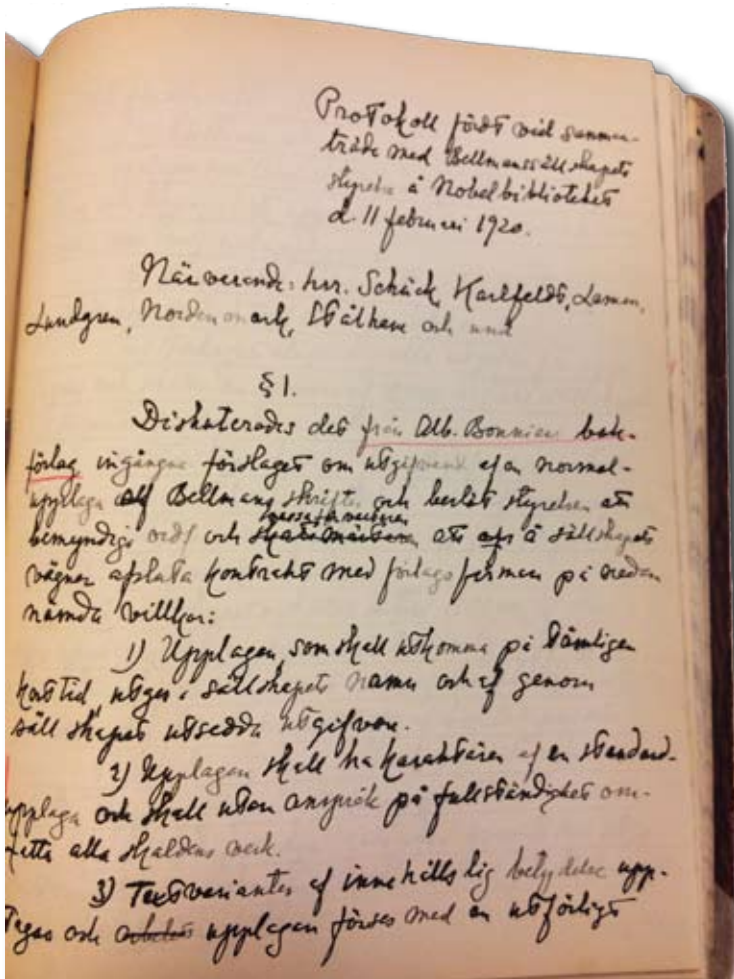 Protokoll fördt vid samman-
träde med Bellmanssällskapets
styrelse å Nobelbibliotekets
d. 11 februari 1920.
Närvarande: hrr. Schück, Karlfeldt, Lamm,
Lundgren, Nordenmark, Stålhane och und
§ 1.
Diskuterades det från Alb. Bonniers bok-
förlag ingångna förslaget om utgifvand af en normal-
upplaga af Bellmans skrifter och beslöt styrelsen att
bemyndiga ordf och skattmästaren att å sällskapets
vägnar afsluta kontrakt med förlagsfirman på nedan
nämda villkor:
1) Upplagan, som skall utkomma på tämligen
kort tid, utges i sällskapets namn och af genom
sällskapet utsedda utgifvare.
2) Upplagan skall ha karaktären af en standard-
upplaga och skall utan anspråk på fullständighet om-
fatta alla skaldens verk.
3) Textvarianter af innehållslig betydelse upp-
tagas och upplagan förses med en utförligt